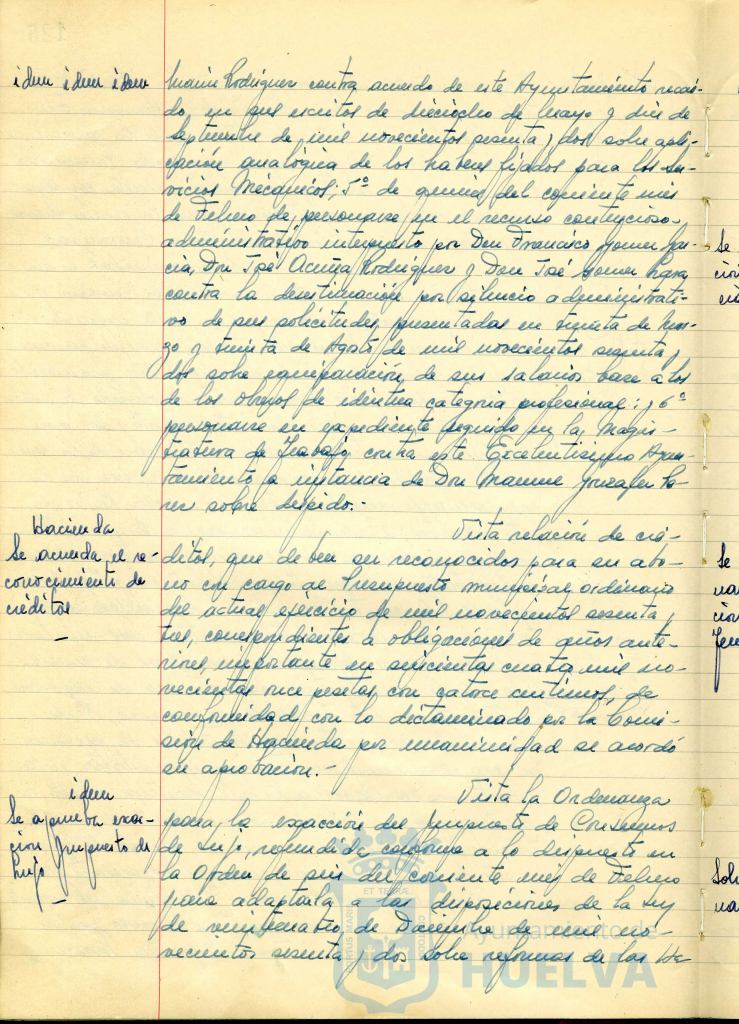 idem idem idem
Marín Rodríguez contra acuerdo de este Ayuntamiento recaí-
do en sus escritos de dieciocho de Mayo y diez de
Septiembre de mil novecientos sesenta y dos sobre apli-
cación analógica de los haberes fijados para los Ser-
vicios Mecánicos; 5º de quince del corriente mes
de Febrero de personarse en el recurso contencioso-
administrativo interpuesto por Don Francisco Gómez Gar-
cía, Don José Acuña Rodríguez y Don José Gómez Lara
contra la desestimación por silencio administrati-
vo de sus solicitudes, presentadas en treinta de Mar-
zo y treinta de Agosto de mil novecientos sesenta y
dos sobre equiparación de sus salarios base a los
de los obreros de idéntica categoría profesional; y 6º
personarse en expediente seguido en la Magis-
tratura de Trabajo contra este Excelentísimo Ayun-
tamiento a instancia de Don Manuel González
sobre despido.-
Hacienda
Se acuerda el re-
conocimiento de
créditos
Vista relación de cré-
ditos, que deben ser reconocidos para su abo-
no con cargo al Presupuesto municipal ordinario
del actual ejercicio de mil novecientos sesenta y
tres, correspondientes a obligaciones de años ante-
riores, importante en seiscientas cuatro mil no-
vecientas once pesetas, con catorce céntimos, de
conformidad con lo dictaminado por la Comi-
sión de Hacienda por unanimidad se acordó
su aprobación.-
idem
Se aprueba exac-
cion Impuesto de
lujo
Vista la Ordenanza
para la exacción del Impuesto de Consumos
de Lujo, redactada conforme a lo dispuesto en
la Orden de seis del corriente mes de Febrero
para adaptarla a las disposiciones de la Ley
de veinticuatro de Diciembre de mil no-
vecientos sesenta y dos sobre reformas de las Ha-
Ayuntamiento de
HUELVA